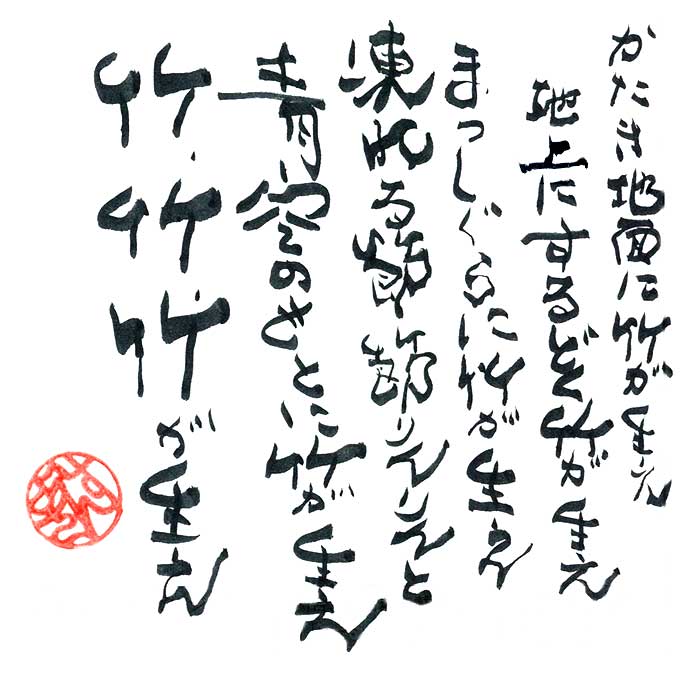 かたき地面に竹が生え
地上にするどく竹が生え
まっしぐらに竹が生え
凍れる節節りんりんと
青空のもとに竹が生え
竹竹竹が生え